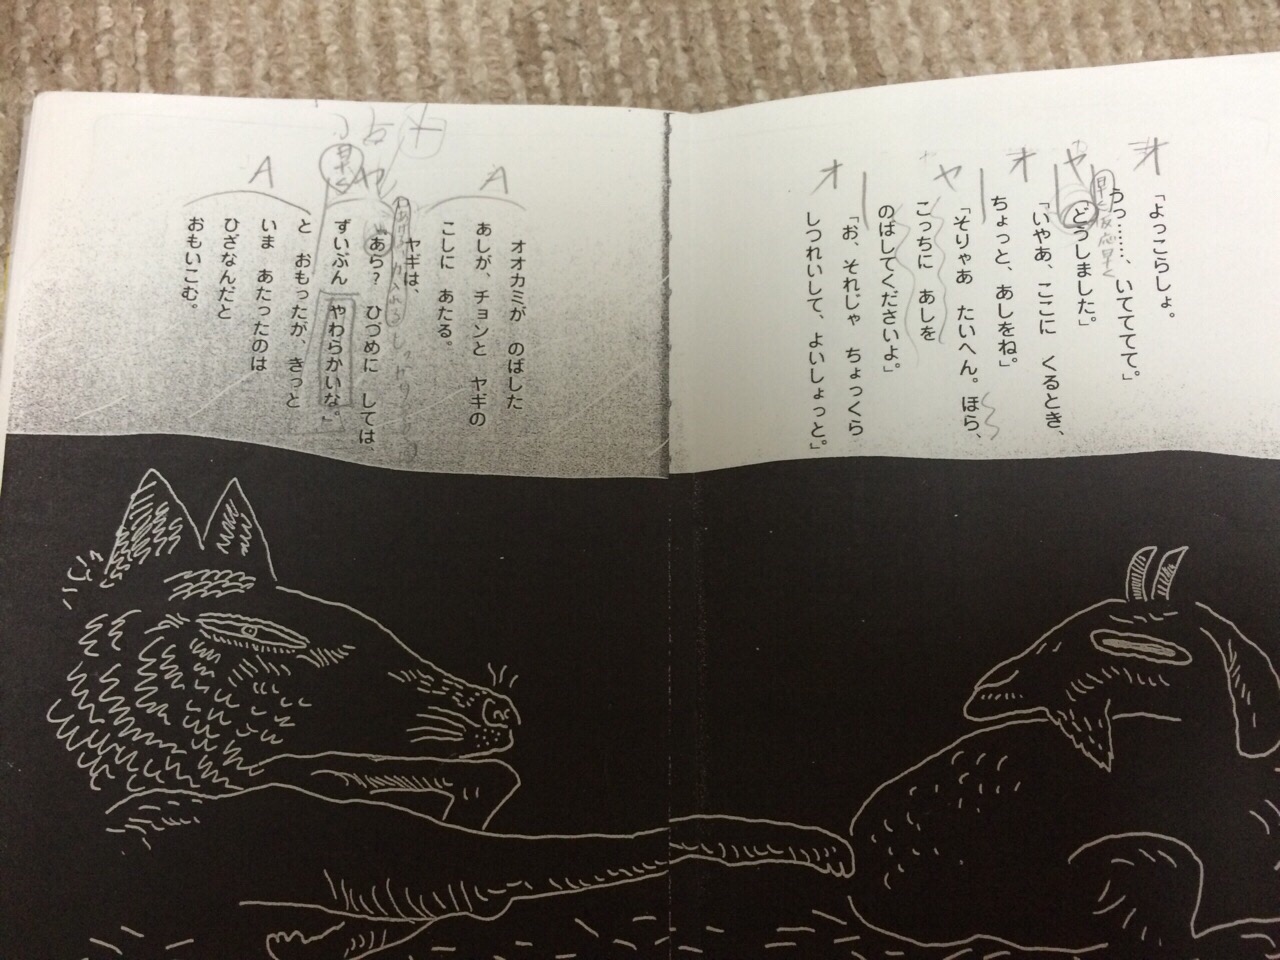 オ
ヤ
オ
ヤ
オ
早く反応早く
「よっこらしょ。
うっ……、いてててて。」
「どうしました。」
「いやあ、ここに　くるとき、
ちょっと、あしをね。」
「そりゃあ　たいへん。ほら、
こっちに　あしを
のばしてくださいよ。」
「お、それじゃ　ちょっくら
しつれいして、よいしょっと。」
A
ヤ
早く
A
オオカミが　のばした
あしが、チョンと　ヤギの
こしに　あたる。
ヤギは、
「あら？　ひづめに　しては
ずいぶん　やわらかいな。」
と　おもったが、きっと
いま　あたったのは
ひざなんだと
おもいこむ。